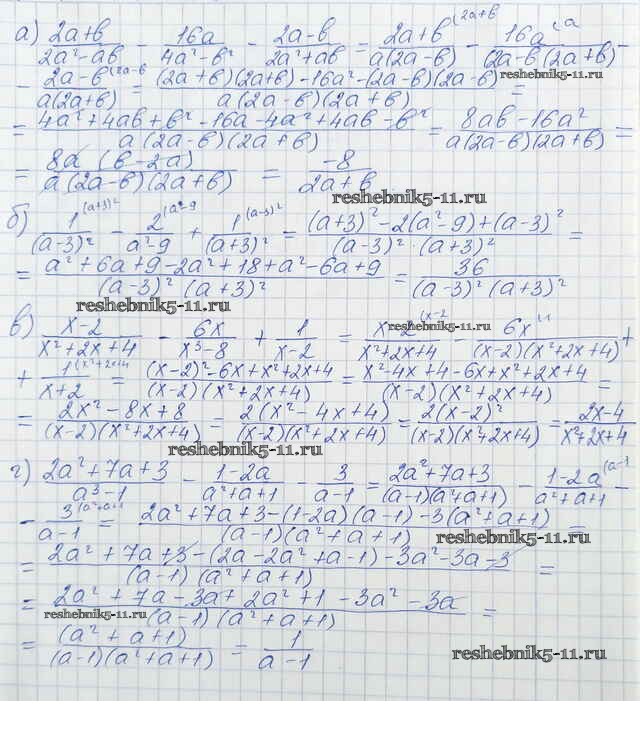 а) (2a+b)/(2a²-ab) - 16a/(4a²-b²) - (2a-b)/(2a²+ab) = (2a+b)/(a(2a-b)) ⁽²ᵃ⁺ᵇ - 16a/((2a-b)(2a+b)) ⁽ᵃ -
- (2a-b)/(a(2a+b)) ⁽²ᵃ⁻ᵇ = ((2a+b)(2a+b)-16a²-(2a-b)(2a-b))/(a(2a-b)(2a+b)) =
reshebnik5-11.ru
= (4a²+4ab+b²-16a-4a²+4ab-b²)/(a(2a-b)(2a+b)) = (8ab-16a²)/(a(2a-b)(2a+b)) =
= (8a(b-2a))/(a(2a-b)(2a+b)) = -8/(2a+b)
reshebnik5-11.ru
б) 1/(a-3)² ⁽⁽ᵃ⁺³⁾² - 2/(a²-9) ⁽ᵃ²⁻⁹ + 1/(a+3)² ⁽⁽ᵃ⁻³⁾² = ((a+3)²-2(a²-9)+(a-3)²)/((a-3)²·(a+3)²) =
= (a²+6a+9-2a²+18+a²-6a+9)/((a-3)²(a+3)²) = 36/((a-3)²(a+3)²)
reshebnik5-11.ru
в) (x-2)/(x²+2x+4) - 6x/(x³-8) + 1/(x-2) = (x-2)/(x²+2x+4) ⁽ˣ⁻² - 6x/((x-2)(x²+2x+4)) ⁽¹ +
+ 1/(x+2) ⁽ˣ²⁺²ˣ⁺⁴ = ((x-2)²-6x+x²+2x+4)/((x-2)(x²+2x+4)) = (x²-4x+4-6x+x²+2x+4)/((x-2)(x²+2x+4)) =
= (2x²-8x+8)/((x-2)(x²+2x+4)) = (2(x²-4x+4))/((x-2)(x²+2x+4)) = (2(x-2)²)/((x-2)(x²+2x+4)) = (2x-4)/(x²+2x+4)
reshebnik5-11.ru
г) (2a²+7a+3)/(a³-1) - (1-2a)/(a²+a+1) - 3/(a-1) = (2a²+7a+3)/((a-1)(a²+a+1)) - (1-2a)/(a²+a+1) ⁽ᵃ⁻¹ -
- 3/(a-1) ⁽ᵃ²⁺ᵃ⁺¹ = (2a²+7a+3-(1-2a)(a-1)-3(a²+a+1))/((a-1)(a²+a+1)) =
reshebnik5-11.ru
= (2a²+7a+3-(2a-2a²+a-1)-3a²-3a-3)/((a-1)(a²+a+1)) =
= (2a²+7a-3a+2a²+1-3a²-3a)/((a-1)(a²+a+1)) =
reshebnik5-11.ru
= (a²+a+1)/((a-1)(a²+a+1)) = 1/(a-1)
reshebnik5-11.ru